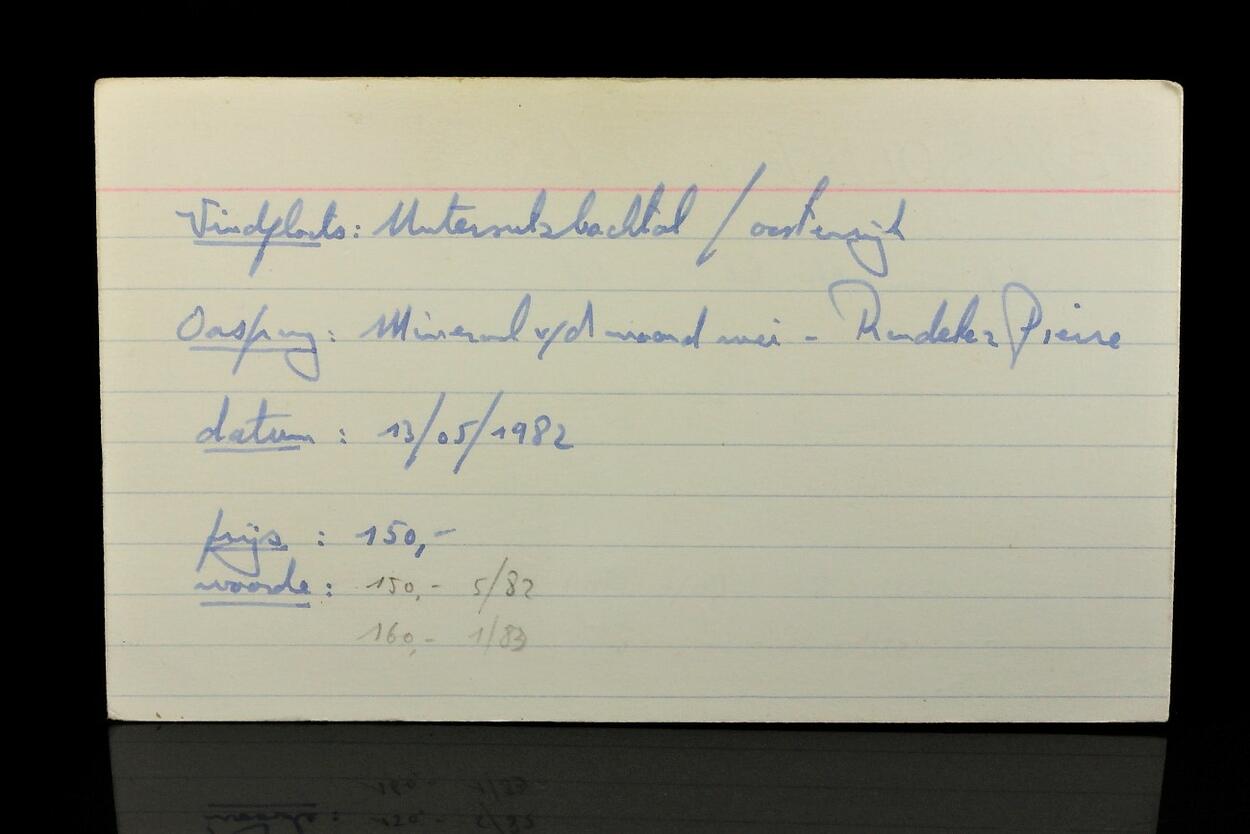 Vindplaats: Untersulzbachtal / oostenrijk
Oorsprong: Mineral v/d maand mei - Pierre
datum : 13/05/1982
prijs : 150,-
waarde : 150,- 5/82
160,- 1/83